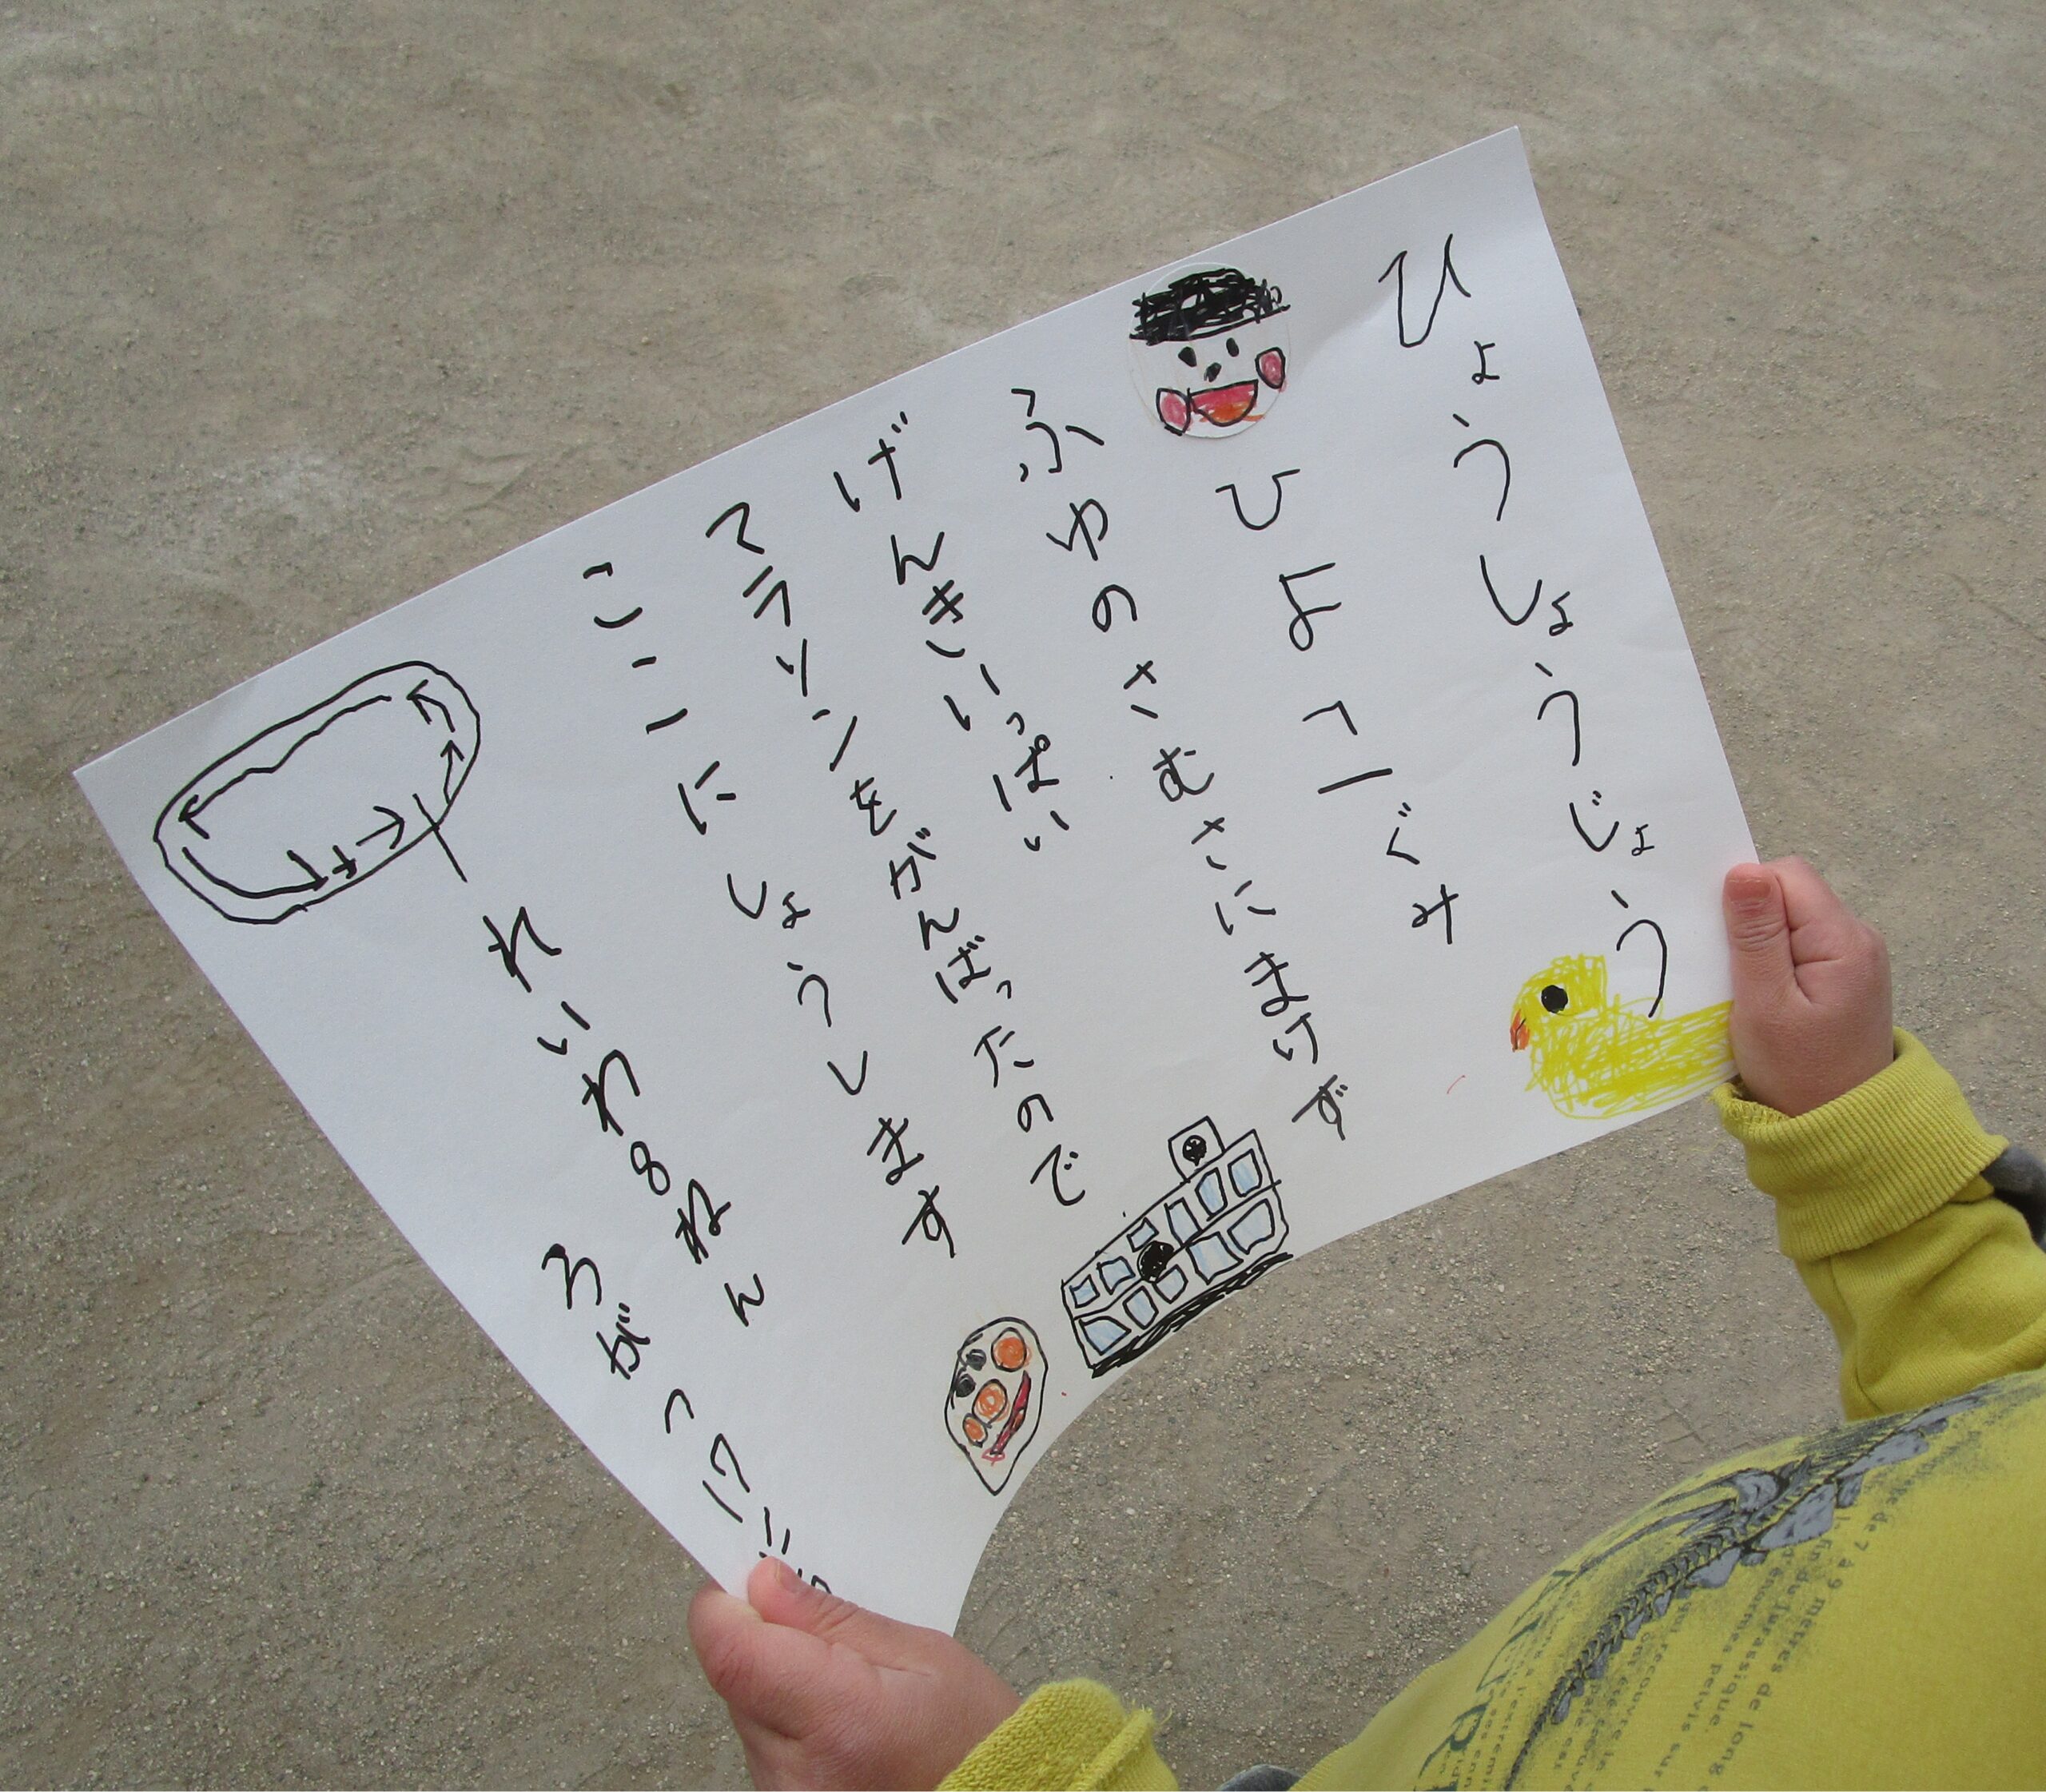 ひょうしょうじょう
ひよこぐみ
ふゆのさむさにまけず
げんきいっぱい
マラソンをがんばったので
ここにしょうします
れいわ8ねん
3がつ17にち
de 7 à 9 mètres de long
jurassique.
pelvis